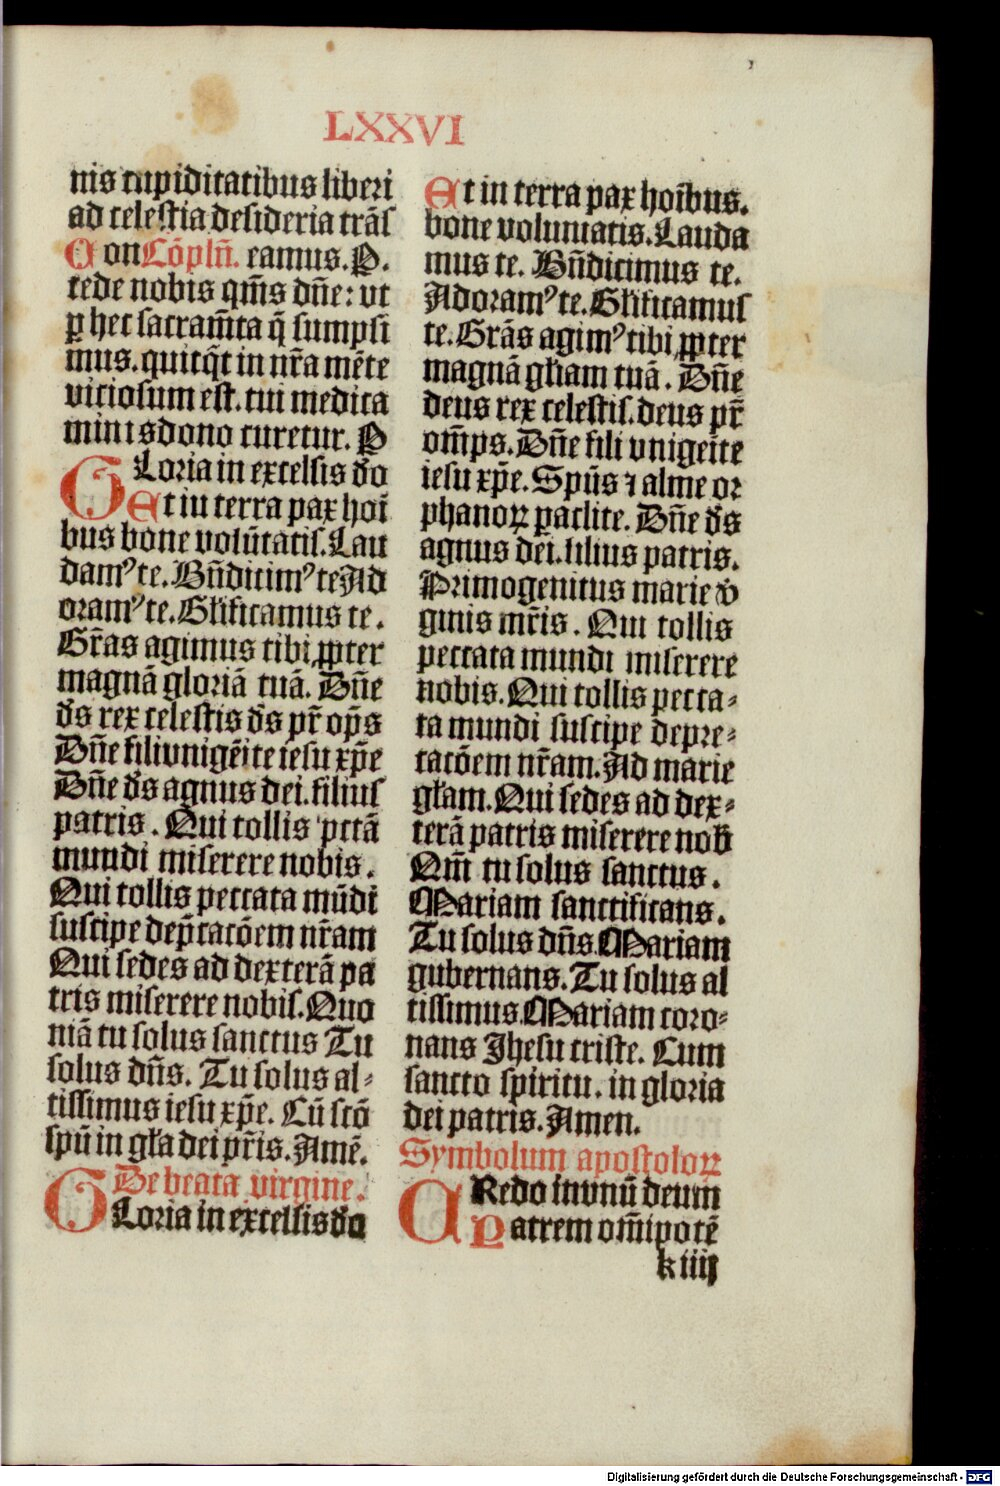 LXXVI
nis cupiditatibus liberi
ad celestia desideria trãs
Con Cõplñ. eamus. P.
cede nobis qm̃s dñe: vt
ꝑ hec sacram̃ta q̃ sumpsi
mus. quicq̃t in nr̃a mẽte
viciosum est. tui medica
minis dono curetur. P
GLoria in excelsis do
Et in terra pax hoĩ
bus bone volũtatis. Lau
damꝰ te. Bñdicimꝰ te Ad
oramꝰ te. Glĩficamus te.
Gr̃as agimus tibi ꝓpter
magnã gloriã tuã. Dñe
ds̃ rex celestis ds̃ pr̃ op̃s
Dñe fili vnigẽite iesu xp̃e
Dñe ds̃ agnus dei. filius
patris. Qui tollis pctã
mundi miserere nobis.
Qui tollis peccata mũdi
suscipe dep̃cacõem nr̃am
Qui sedes ad dexterã pa
tris miserere nobis. Quo
niã tu solus sanctus Tu
solus dñs. Tu solus al⸗
tissimus iesu xp̃e. Cũ scõ
spũ in gľa dei pr̃is. Amẽ.
De beata virgine.
GLoria in excelsis do
Et in terra pax hoĩbus.
bone voluntatis. Lauda
mus te. Bñdicimus te.
Adoramꝰ te. Glĩficamus
te. Grãs agimꝰ tibi ꝓpter
magnã gľiam tuã. Dñe
deus rex celestis. deus pr̃
om̃ps. Dñe fili vnigeĩte
iesu xp̃e. Spũs ⁊ alme or
phanoꝝ ꝑaclite. Dñe ds̃
agnus dei. filius patris.
Primogenitus marie v̾
ginis mr̃is. Qui tollis
peccata mundi miserere
nobis. Qui tollis pecca⸗
ta mundi suscipe depre⸗
cacõem nr̃am. Ad marie
gľam. Qui sedes ad dex⸗
terã patris miserere nob̃
Qm̃ tu solus sanctus.
Mariam sanctificans.
Tu solus dñs. Mariam
gubernans. Tu solus al
tissimus. Mariam coro⸗
nans Jhesu criste. Cum
sancto spiritu. in gloria
dei patris. Amen.
Symbolum apostoloꝝ
CRedo in vnũ deum
Patrem om̃ipotẽ
k iiij
Digitalisierung gefördert durch die Deutsche Forschungsgemeinschaft - DFG